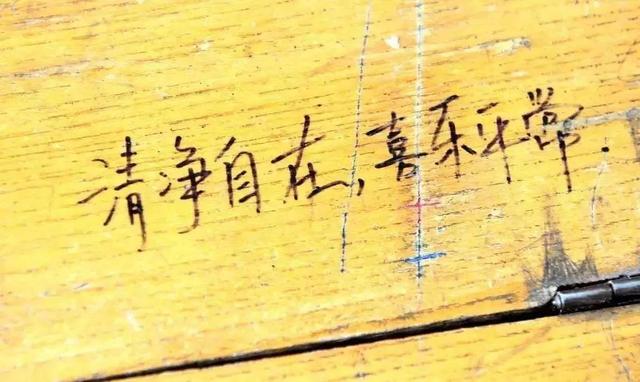 清净自在,喜乐平常.